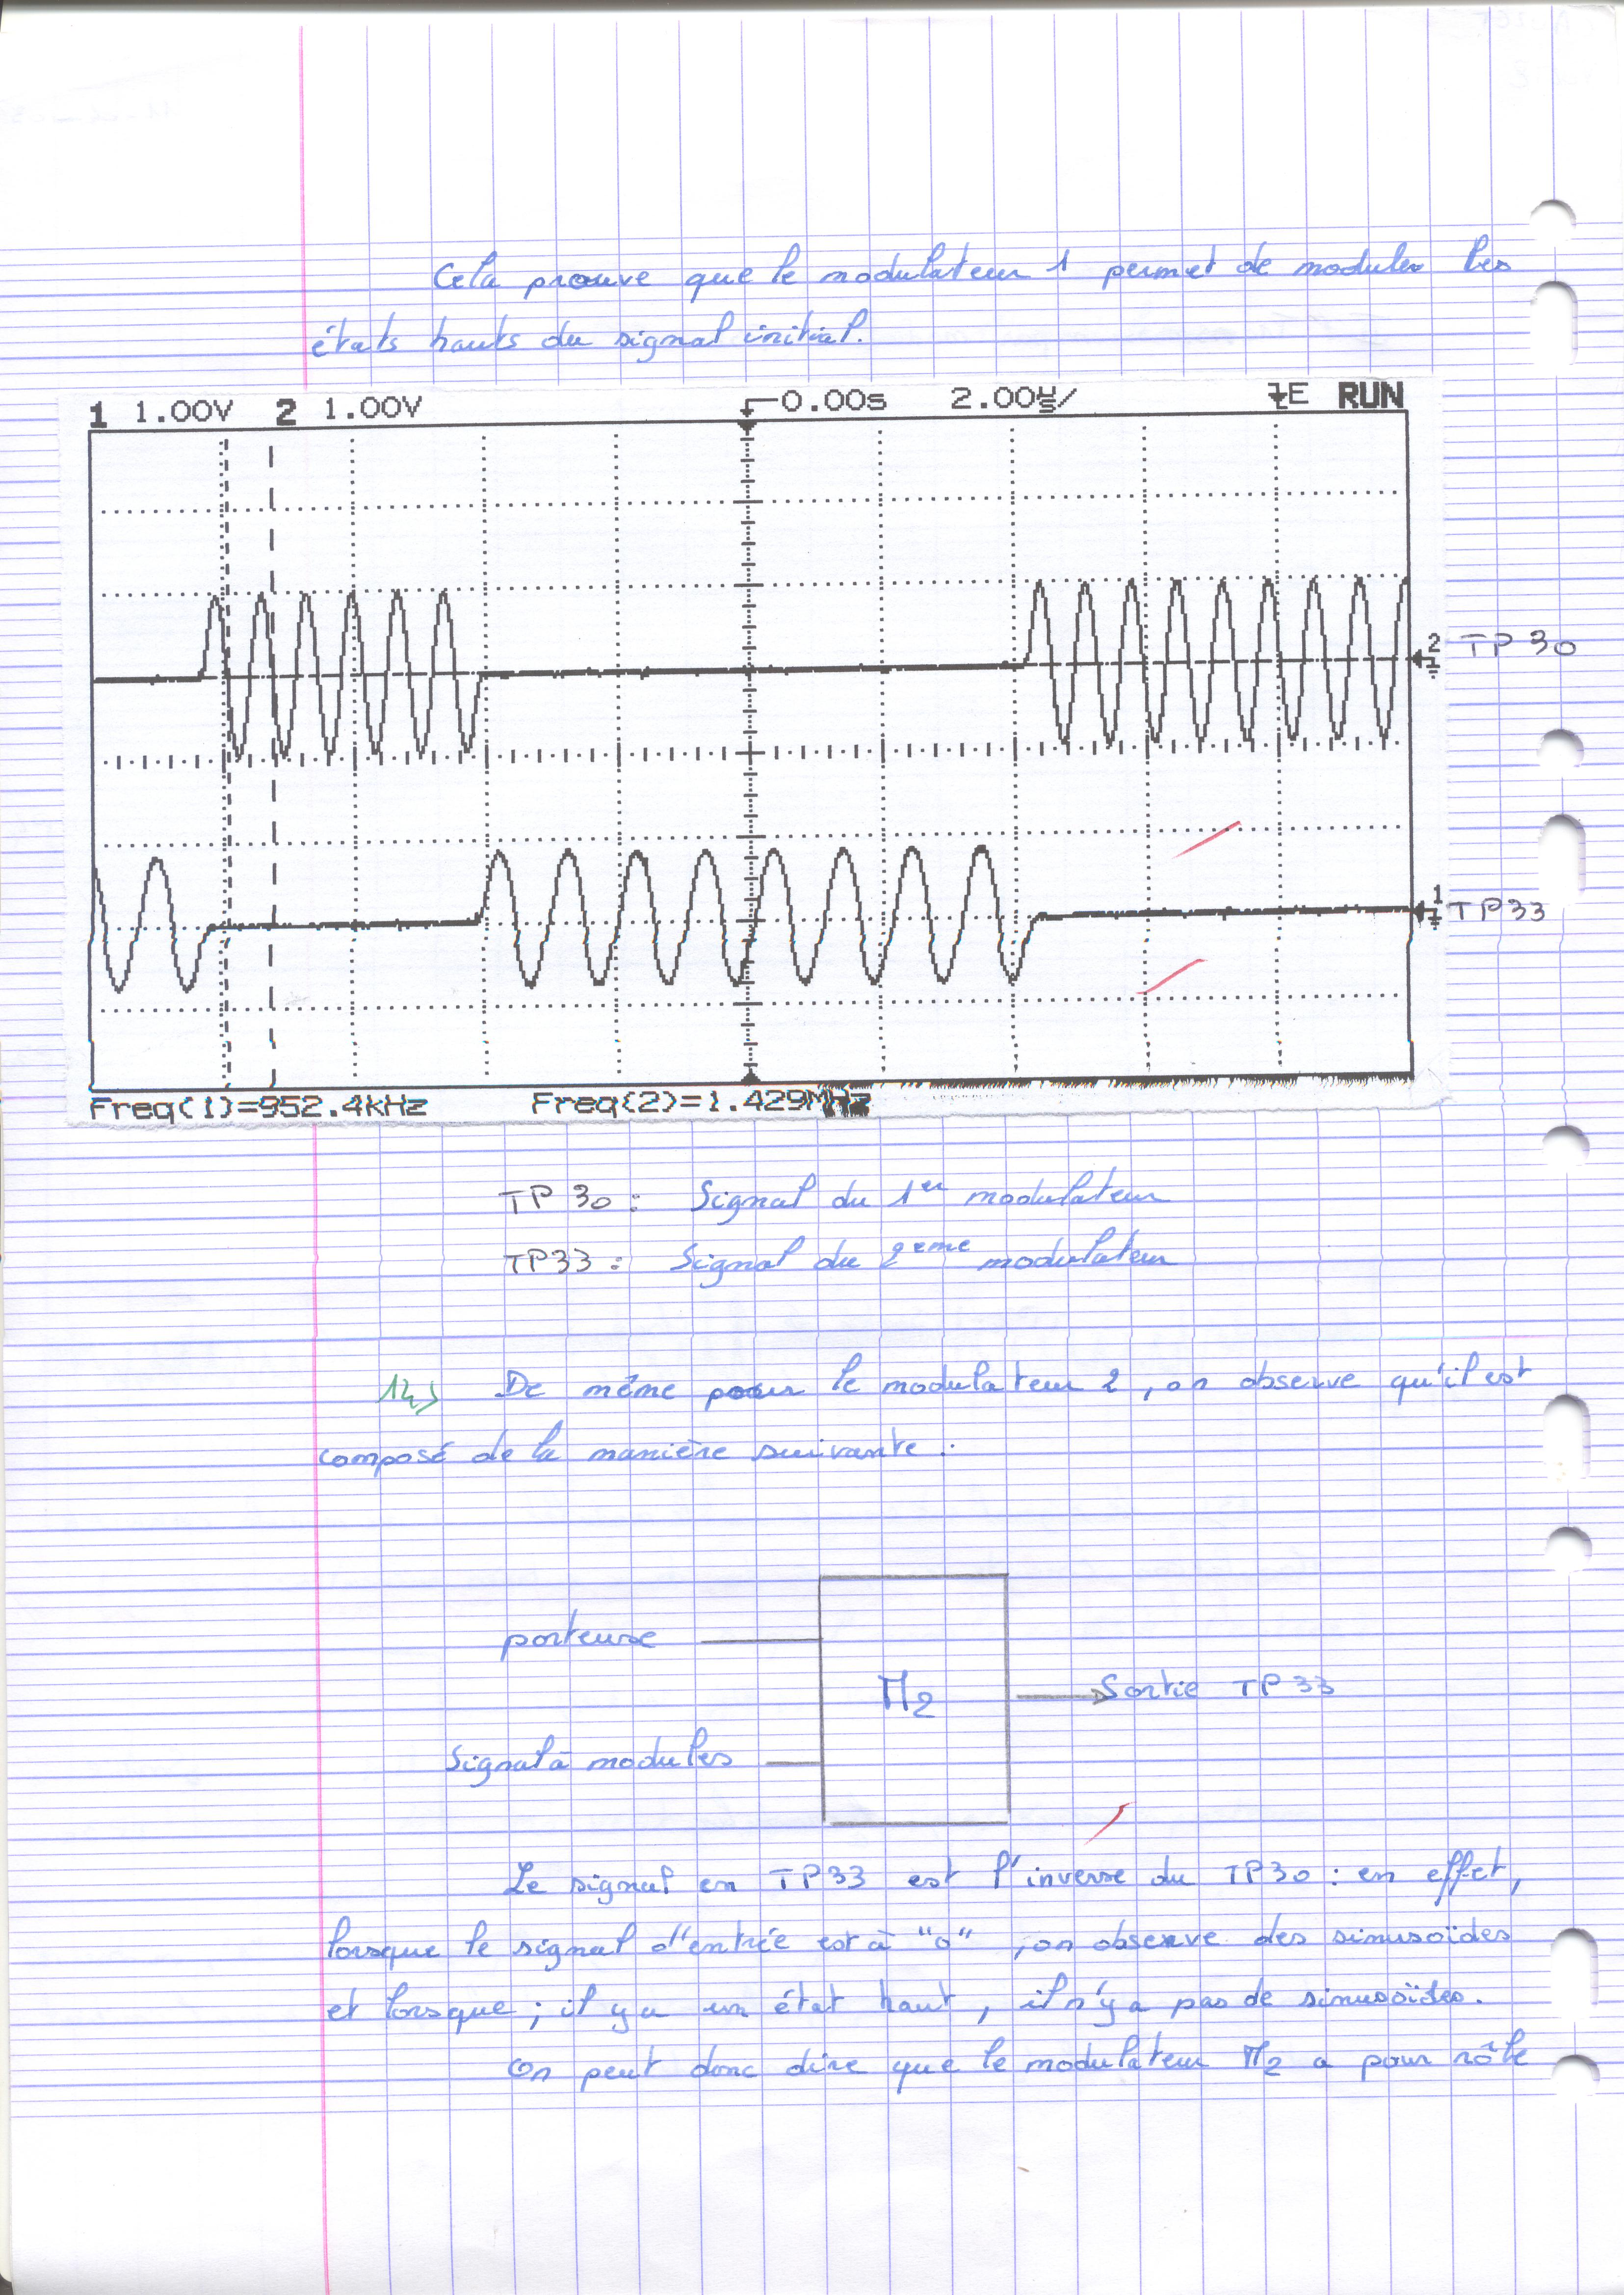 Cela prouve que le modulateur 1 permet de moduler les
états hauts du signal initial.
1 1.00V 2 1.00V 0.00s 2.00µs/ E RUN
2 TP 30
1 TP33
Freq(1)=952.4kHz Freq(2)=1.429MHz
TP 30 : Signal du 1er modulateur
TP33 : Signal du 2eme modulateur
14) De même pour le modulateur 2, on observe qu'il est
composé de la manière suivante :
porteuse
M2
Sortie TP 33
Signal à modules
Le signal en TP33 est l'inverse du TP30 : en effet,
lorsque le signal d'entrée est à "0", on observe des sinusoïdes
et lorsque ; il y a un état haut, il n'y a pas de sinusoïdes.
On peut donc dire que le modulateur M2 a pour rôle